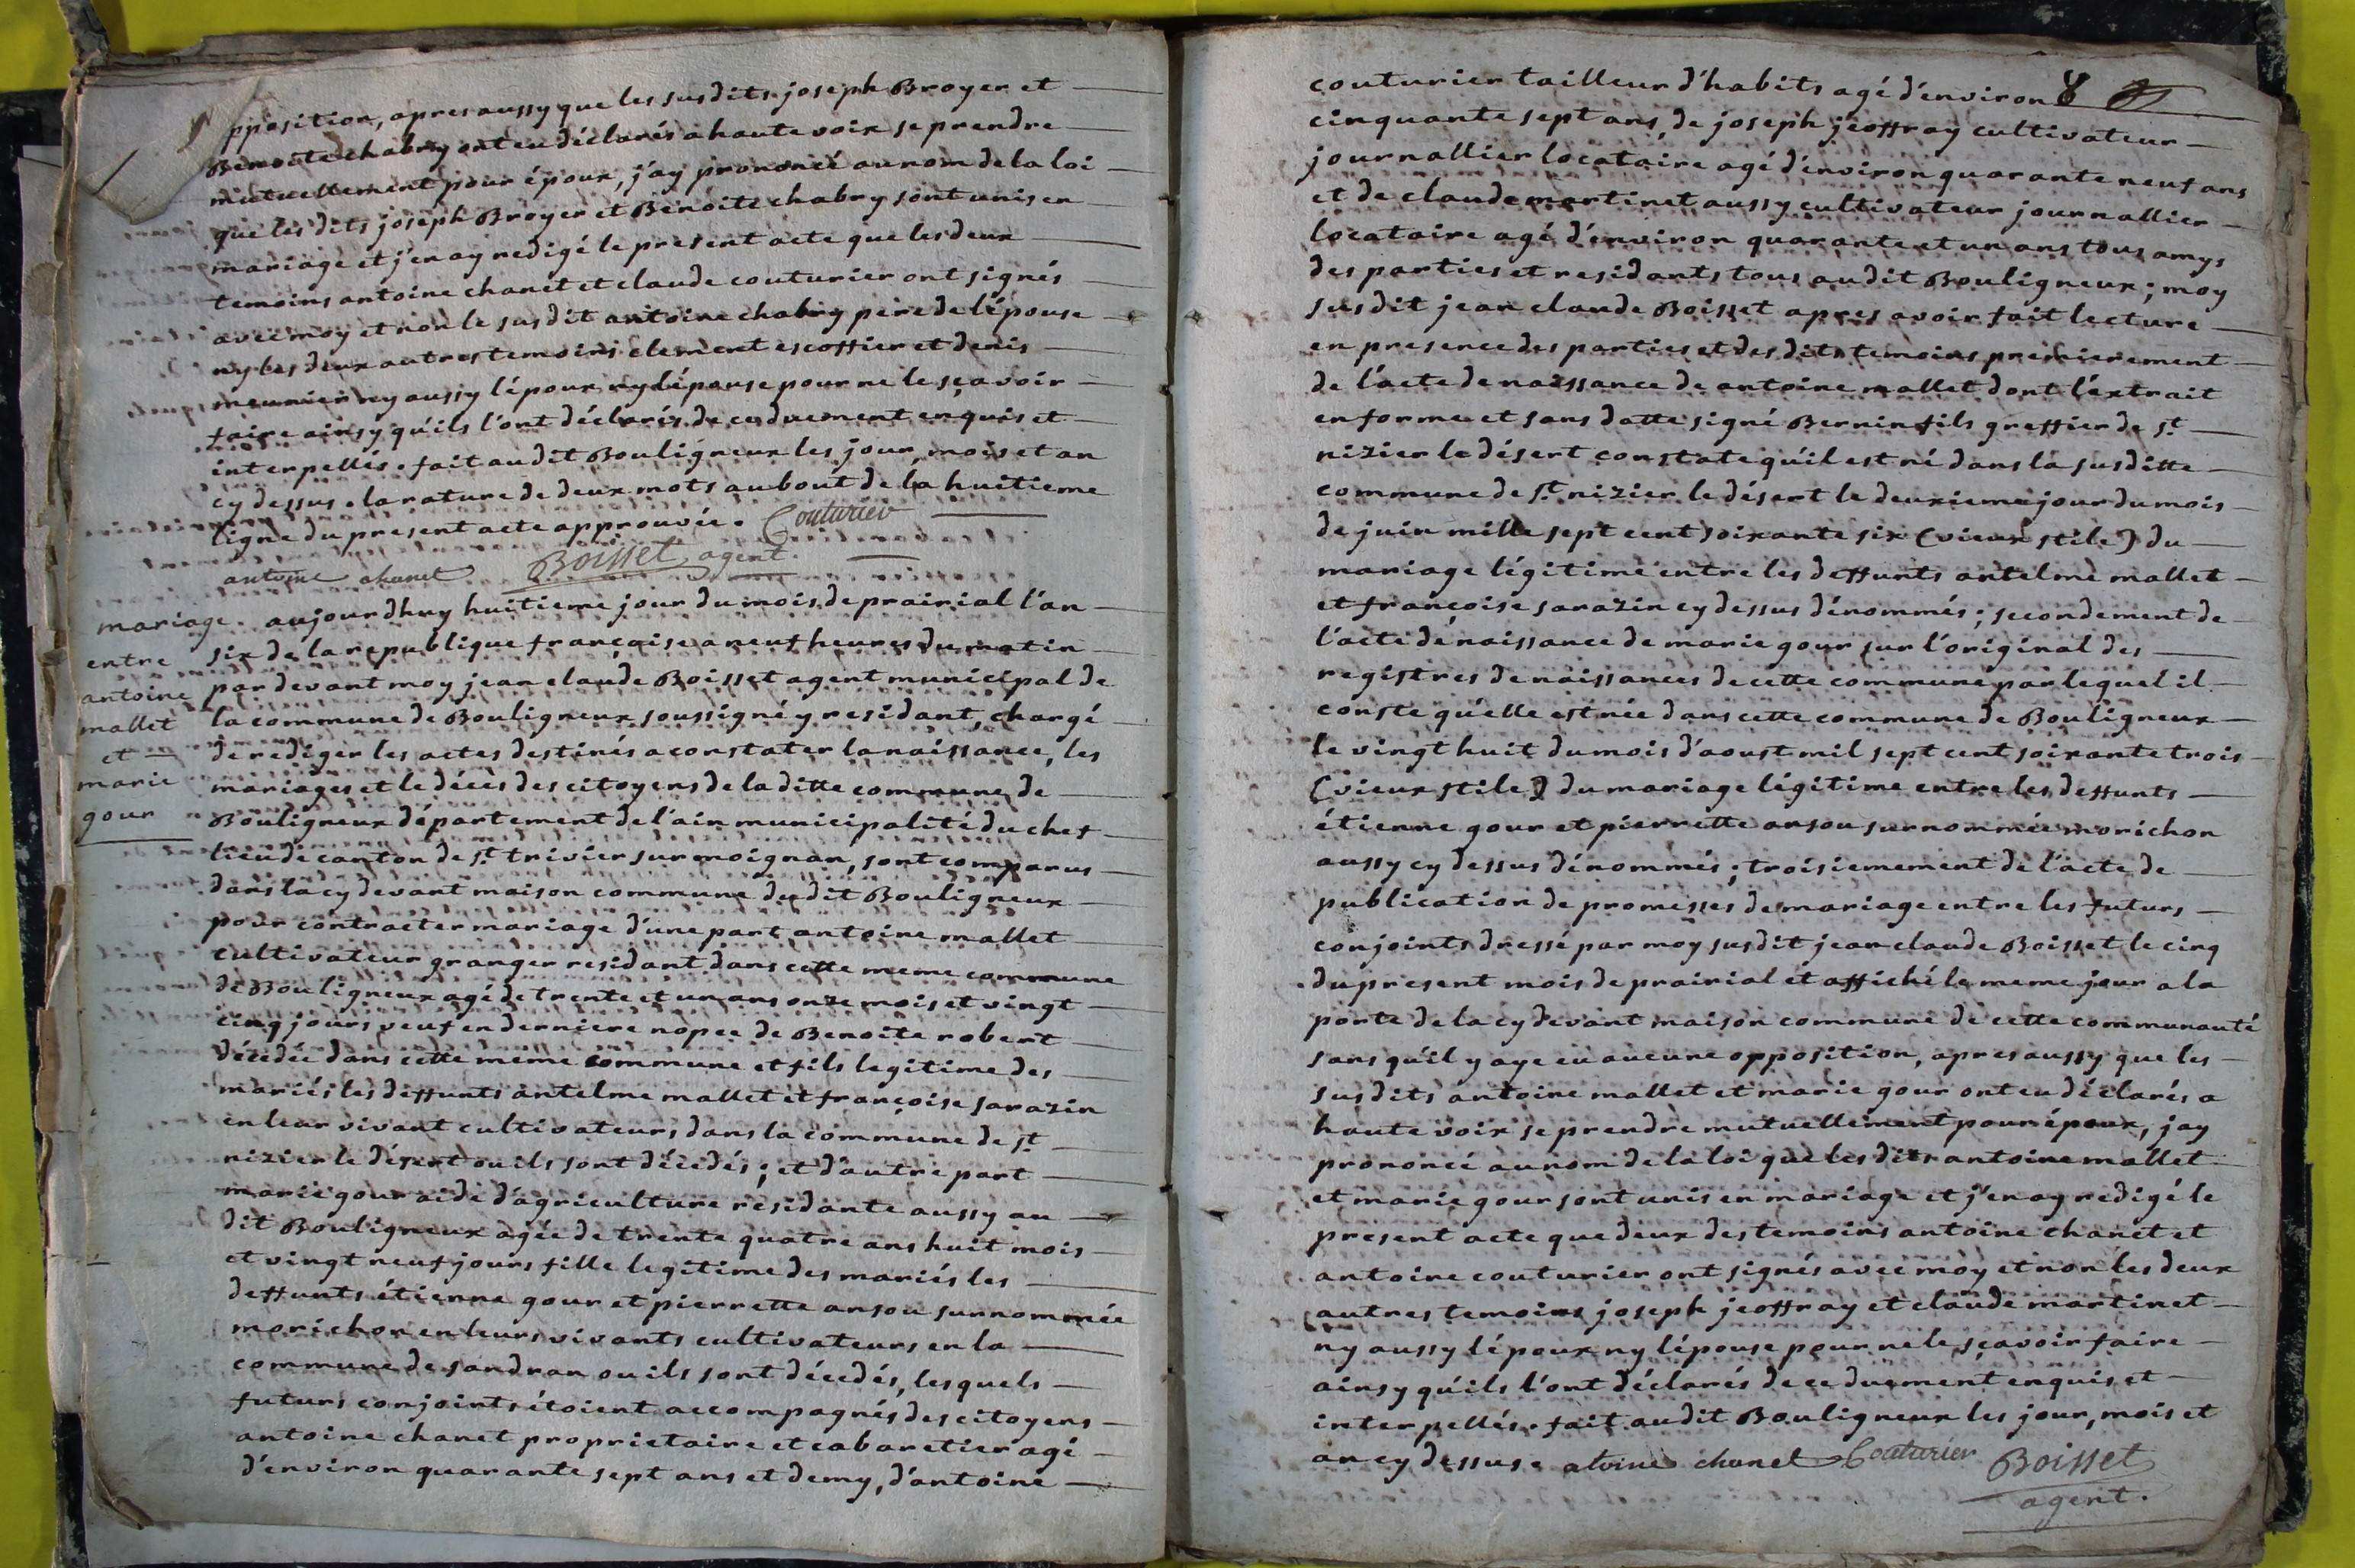 pposition, apres aussy que les susdits joseph Broyer et
Benoite chabry ont eu déclarés a haute voix se prendre
mutuellement pour époux, j'ay prononcé au nom de la loi
que les dits joseph Broyer et Benoite chabry sont unis en
mariage et j'en ay redigé le present acte que les deux
temoins antoine chanet et claude couturier ont signés
avec moy et non le susdit antoine chabry pere de l'épouse
ny les deux autres temoins clement escoffier et denis
meunier ny aussy l'époux ny l'épouse pour ne le sçavoir
faire ainsy qu'ils l'ont déclarés de ce duement enquis et
interpellés. fait au dit Bouligneux les jour, mois et an
cy dessus. la rature de deux mots au bout de la huitieme
ligne du present acte approuvée. Couturier
antoine chanet Boisset agent.
mariage entre antoine mallet et marie gour
aujourdhuy huitieme jour du mois de prairial l'an
six de la republique françoise a neuf heures du matin
par devant moy jean claude Boisset agent municipal de
la commune de Bouligneux soussigné y residant, chargé
de rediger les actes destinés a constater la naissance, les
mariages et le décès des citoyens de la ditte commune de
Bouligneux département de l'ain municipalité du chef
lieu de canton de st trivier sur moignan, sont comparus
dans la cy devant maison commune du dit Bouligneux
pour contracter mariage d'une part antoine mallet
cultivateur granger residant dans cette meme commune
de Bouligneux agé de trente et un ans onze mois et vingt
cinq jours veuf en derniere nopce de Benoite robert
décedée dans cette meme commune et fils legitime des
mariés les deffunts antelme mallet et françoise sarazin
en leur vivant cultivateurs dans la commune de st
nizier le désert ou ils sont décedés; et d'autre part
marie gour aide d'agriculture residante aussy au
dit Bouligneux agée de trente quatre ans huit mois
et vingt neuf jours fille legitime des mariés les
deffunts étienne gour et pierrette ansou surnommée
morichon en leurs vivants cultivateurs en la
commune de sandran ou ils sont décedés, lesquels
futurs conjoints étoient accompagnés des citoyens
antoine chanet proprietaire et cabaretier agé
d'environ quarante sept ans et demy, d'antoine
8
couturier tailleur d'habits agé d'environ
cinquante sept ans, de joseph jeoffray cultivateur
journallier locataire agé d'environ quarante neuf ans
et de claude martinet aussy cultivateur journallier
locataire agé d'environ quarante et un ans tous amys
des parties et residants tous au dit Bouligneux; moy
susdit jean claude Boisset apres avoir fait lecture
en presence des parties et des dits temoins premierement
de l'acte de naissance de antoine mallet dont l'extrait
en forme et sans datte signé Bernin fils greffier de st
nizier le désert constate qu'il est né dans la susditte
commune de st nizier le désert le deuxieme jour du mois
de juin mille sept cent soixante six (vieux stile) du
mariage légitime entre les deffunts antelme mallet
et françoise sarazin cy dessus dénommés; secondement de
l'acte de naissance de marie gour sur l'original des
registres de naissances de cette commune par lequel il
conste qu'elle est née dans cette commune de Bouligneux
le vingt huit du mois d'aoust mil sept cent soixante trois
(vieux stile) du mariage légitime entre les deffunts
étienne gour et pierrette ansou surnommée morichon
aussy cy dessus dénommés; troisiemement de l'acte de
publication de promesses de mariage entre les futurs
conjoints dressé par moy susdit jean claude Boisset le cinq
du present mois de prairial et affiché le meme jour a la
porte de la cy devant maison commune de cette communauté
sans qu'il y aye eu aucune opposition, apres aussy que les
susdits antoine mallet et marie gour ont eu déclarés a
haute voix se prendre mutuellement pour époux, j'ay
prononcé au nom de la loi que les dits antoine mallet
et marie gour sont unis en mariage et j'en ay redigé le
present acte que deux des temoins antoine chanet et
antoine couturier ont signés avec moy et non les deux
autres temoins joseph jeoffray et claude martinet
ny aussy l'époux ny l'épouse pour ne le sçavoir faire
ainsy qu'ils l'ont déclarés de ce duement enquis et
interpellés. fait au dit Bouligneux les jour, mois et
an cy dessus. atoine chanet Couturier Boisset
agent.